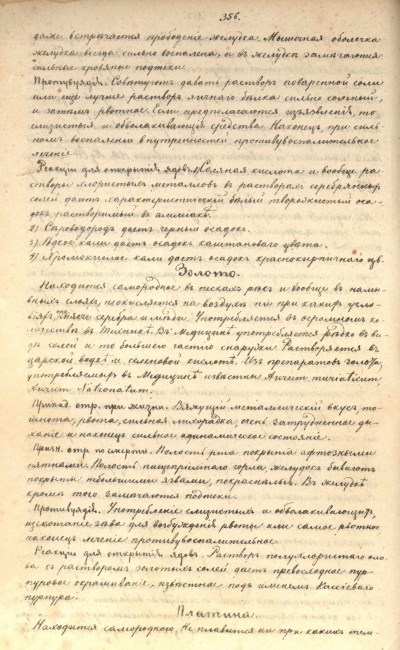 356.
даже встрѣчается прободеніе желудка. Мышечная оболочка
желудка всегда сильно воспалена, и въ желудкѣ замѣчаются
сильные кровяные подтеки.
Противуядія. Совѣтуютъ давать растворъ поваренной соли
или еще лучше растворъ яичнаго бѣлка сильно соленый,
и затѣмъ рвотное. Если предполагаются изъязвленія, то
слизистыя и обволакивающія средства. Наконецъ, при силь-
номъ воспаленіи внутренностей противувоспалительное
леченіе.
Реакціи для открытія ядовъ. 1) Соляная кислота и вообще ра-
створы хлористыхъ металловъ въ растворахъ серебряныхъ
солей даютъ характеристическій бѣлый творожистый оса-
докъ растворимый въ амміакѣ.
2) Сѣроводородъ даетъ черный осадокъ.
3) Ѣдкое кали даетъ осадокъ каштановаго цвѣта.
4) Хромокислое кали даетъ осадокъ краснокирпичнаго цв.
Золото.
Находится самородное въ пескахъ рѣкъ и вообще въ налив-
ныхъ слояхъ, неокисляется на воздухѣ ни при какихъ усло-
віяхъ; тяжеле серебра и мѣди. Употребляется въ огромномъ ко-
личествѣ въ Техникѣ. Въ Медицинѣ употребляется рѣдко въ ви-
дѣ солей и то большею частію снаружи. Растворяется въ
царской водкѣ и селеновой кислотѣ. Изъ препаратовъ золота,
употребляемыхъ въ Медицинѣ извѣстны Aurum muriaticum
Aurum Natronatum.
Призн. отр. при жизни. Вяжущій металлическій вкусъ, то-
шнота, рвота, сильная лихорадка, очень затрудненное ды-
ханіе и наконецъ сильное адинамическое состояніе.
Призн. отр. по смерти. Полость рта покрыта афтозными
пятнами. Полость пищепріемнаго горла, желудокъ бываютъ
покрыты небольшими язвами, покраснѣлыя. Въ желудкѣ
кромѣ того замѣчаются подтеки.
Противуядія. Употребленіе слизистыхъ и обволакивающихъ,
щекотаніе зѣва для возбужденія рвоты или самое рвотное
наконецъ леченіе противувоспалительное.
Реакціи для открытія ядовъ. Растворъ полухлористаго оло-
ва съ растворомъ золотыхъ солей даетъ превосходное пур-
пуровое окрашиваніе, извѣстное подъ именемъ Кассіева
пурпура.
Платина.
Находится самородною. Не плавится ни при какихъ тем-